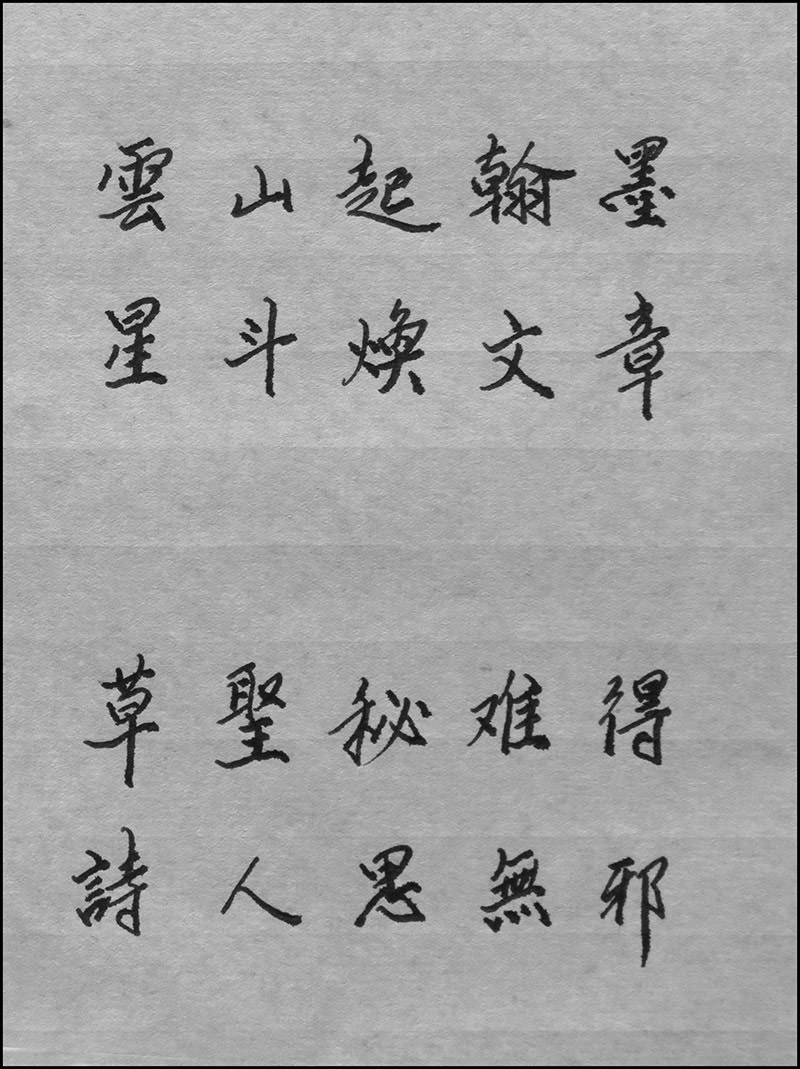 雲山起翰墨
星斗煥文章
草聖秘难得
詩人思無邪